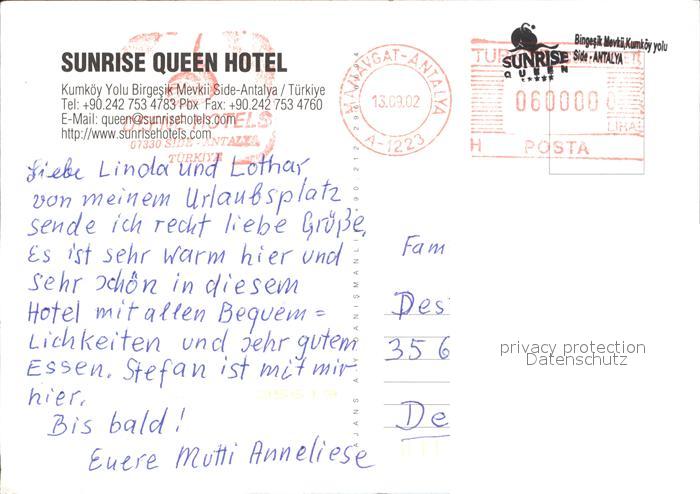 SUNRISE QUEEN HOTEL
Kumköy Yolu Birgeşik Mevkii Side-Antalya / Türkiye
Tel: +90.242 753 4783 Pbx Fax: +90.242 753 4760
E-Mail: queen@sunrisehotels.com
http://www.sunrisehotels.com
HOTELS
07330 SIDE - ANTALYA
TURKIYE
MANAVGAT-ANTALYA
13.09.02
A-1223
SUNRISE
QUEEN
Bingeşik Mevkii, Kumköy yolu
Side - ANTALYA
060000
LIRA
POSTA
Liebe Linda und Lothar
von meinem Urlaubsplatz
sende ich recht liebe Grüße,
Es ist sehr warm hier und
sehr schön in diesem
Hotel mit allen Bequem=
Lichkeiten und sehr gutem
Essen. Stefan ist mit mir
hier.
Bis bald!
Euere Mutti Anneliese
Fam
Des
356
De
privacy protection
Datenschutz